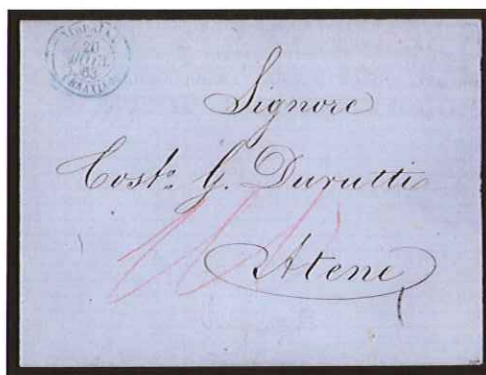 20
63
Signore
Costo. G. Durutti
Atene